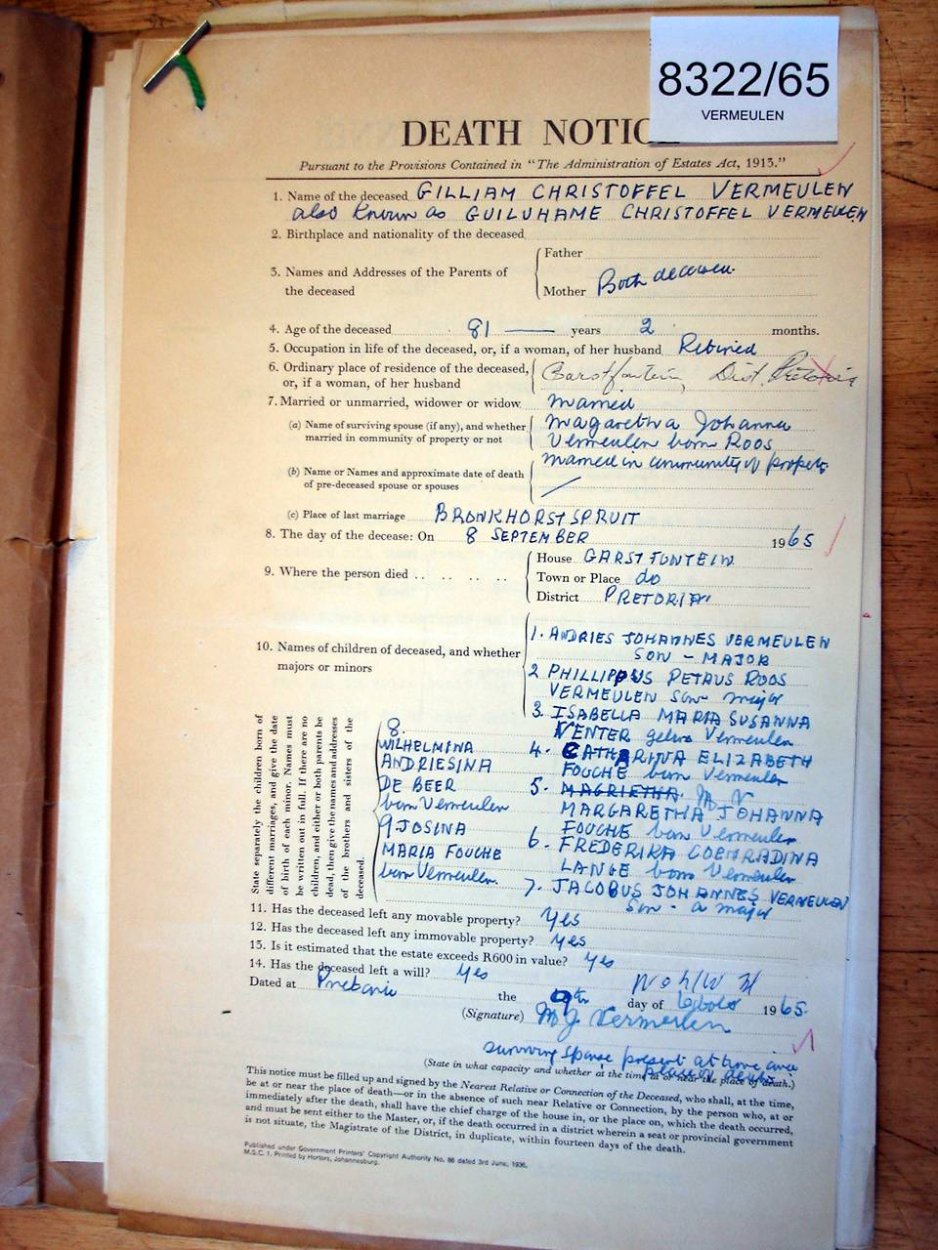 8322/65
VERMEULEN
DEATH NOTIC
Pursuant to the Provisions Contained in "The Administration of Estates Act, 1913."
1. Name of the deceased GILLIAM CHRISTOFFEL VERMEULEN
also known as GUILUHAME CHRISTOFFEL VERMEULEN
2. Birthplace and nationality of the deceased
3. Names and Addresses of the Parents of the deceased
Father
Mother Both deceased
4. Age of the deceased 81 — years 2 months.
5. Occupation in life of the deceased, or, if a woman, of her husband Retired
6. Ordinary place of residence of the deceased, or, if a woman, of her husband
Garstfontein, Dist. Pretoria
7. Married or unmarried, widower or widow. Married
(a) Name of surviving spouse (if any), and whether married in community of property or not
Magaretha Johanna
Vermeulen born Roos
married in community of property
(b) Name or Names and approximate date of death of pre-deceased spouse or spouses
(c) Place of last marriage BRONKHORSTSPRUIT
8. The day of the decease: On 8 SEPTEMBER 1965
9. Where the person died .. .. .. ..
House GARSTFONTEIN
Town or Place do
District PRETORIA
10. Names of children of deceased, and whether majors or minors
1. ANDRIES JOHANNES VERMEULEN
SON - MAJOR
2 PHILLIPPUS PETRUS ROOS
VERMEULEN son major
3. ISABELLA MARIA SUSANNA
VENTER gebore Vermeulen
4. CATHARINA ELIZABETH
FOUCHE born Vermeulen
5. MAGRIETHA M V
MARGARETHA JOHANNA
FOUCHE born Vermeulen
6. FREDERIKA COENRADINA
LANGE born Vermeulen
7. JACOBUS JOHANNES VERMEULEN
Son - a major
8.
WILHELMINA
ANDRIESINA
DE BEER
born Vermeulen
9 JOSINA
MARIA FOUCHE
born Vermeulen
State separately the children born of
different marriages, and give the date
of birth of each minor. Names must
be written out in full. If there are no
children, and either or both parents be
dead, then give the names and addresses
of the brothers and sisters of the
deceased.
11. Has the deceased left any movable property? Yes
12. Has the deceased left any immovable property? Yes
13. Is it estimated that the estate exceeds R600 in value? Yes
14. Has the deceased left a will? Yes
Dated at the 9th day of 1965.
(Signature) M J Vermeulen
surviving spouse present at time and
place of death
(State in what capacity and whether at the time at or near the place of death.)
This notice must be filled up and signed by the Nearest Relative or Connection of the Deceased, who shall, at the time,
be at or near the place of death—or in the absence of such near Relative or Connection, by the person who, at or
immediately after the death, shall have the chief charge of the house in, or the place on, which the death occurred,
and must be sent either to the Master, or, if the death occurred in a district wherein a seat or provincial government
is not situate, the Magistrate of the District, in duplicate, within fourteen days of the death.
Published under Government Printers' Copyright Authority No. 86 dated 3rd June, 1936.
M.S.C. 1. Printed by Hortors, Johannesburg.